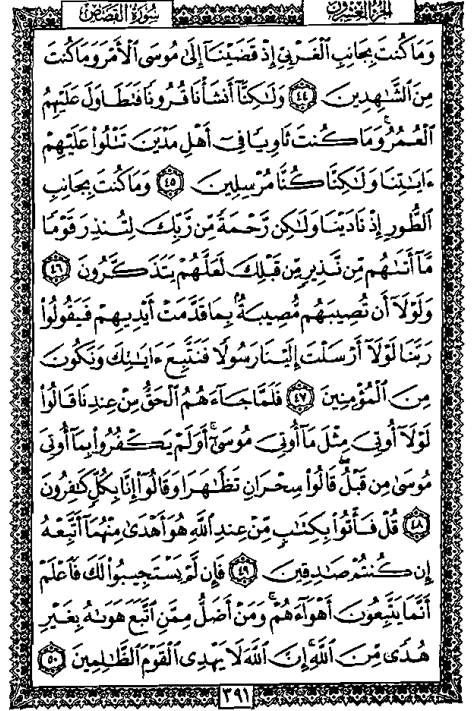 سُورَةُ القَصَصِ
الجُزءُ العِشرُونَ
وَمَا كُنتَ بِجَانِبِ ٱلْغَرْبِىِّ إِذْ قَضَيْنَآ إِلَىٰ مُوسَى ٱلْأَمْرَ وَمَا كُنتَ
مِنَ ٱلشَّٰهِدِينَ ٤٤ وَلَٰكِنَّآ أَنشَأْنَا قُرُونًا فَتَطَاوَلَ عَلَيْهِمُ
ٱلْعُمُرُ وَمَا كُنتَ ثَاوِيًا فِىٓ أَهْلِ مَدْيَنَ تَتْلُوا۟ عَلَيْهِمْ
ءَايَٰتِنَا وَلَٰكِنَّا كُنَّا مُرْسِلِينَ ٤٥ وَمَا كُنتَ بِجَانِبِ
ٱلطُّورِ إِذْ نَادَيْنَا وَلَٰكِن رَّحْمَةً مِّن رَّبِّكَ لِتُنذِرَ قَوْمًا
مَّآ أَتَىٰهُم مِّن نَّذِيرٍ مِّن قَبْلِكَ لَعَلَّهُمْ يَتَذَكَّرُونَ ٤٦
وَلَوْلَآ أَن تُصِيبَهُم مُّصِيبَةٌۢ بِمَا قَدَّمَتْ أَيْدِيهِمْ فَيَقُولُوا۟
رَبَّنَا لَوْلَآ أَرْسَلْتَ إِلَيْنَا رَسُولًا فَنَتَّبِعَ ءَايَٰتِكَ وَنَكُونَ
مِنَ ٱلْمُؤْمِنِينَ ٤٧ فَلَمَّا جَآءَهُمُ ٱلْحَقُّ مِنْ عِندِنَا قَالُوا۟
لَوْلَآ أُوتِىَ مِثْلَ مَآ أُوتِىَ مُوسَىٰٓ ۚ أَوَلَمْ يَكْفُرُوا۟ بِمَآ أُوتِىَ
مُوسَىٰ مِن قَبْلُ ۖ قَالُوا۟ سِحْرَانِ تَظَٰهَرَا وَقَالُوٓا۟ إِنَّا بِكُلٍّ كَٰفِرُونَ
٤٨ قُلْ فَأْتُوا۟ بِكِتَٰبٍ مِّنْ عِندِ ٱللَّهِ هُوَ أَهْدَىٰ مِنْهُمَآ أَتَّبِعْهُ
إِن كُنتُمْ صَٰدِقِينَ ٤٩ فَإِن لَّمْ يَسْتَجِيبُوا۟ لَكَ فَٱعْلَمْ
أَنَّمَا يَتَّبِعُونَ أَهْوَآءَهُمْ ۚ وَمَنْ أَضَلُّ مِمَّنِ ٱتَّبَعَ هَوَىٰهُ بِغَيْرِ
هُدًى مِّنَ ٱللَّهِ ۚ إِنَّ ٱللَّهَ لَا يَهْدِى ٱلْقَوْمَ ٱلظَّٰلِمِينَ ٥٠
٣٩١